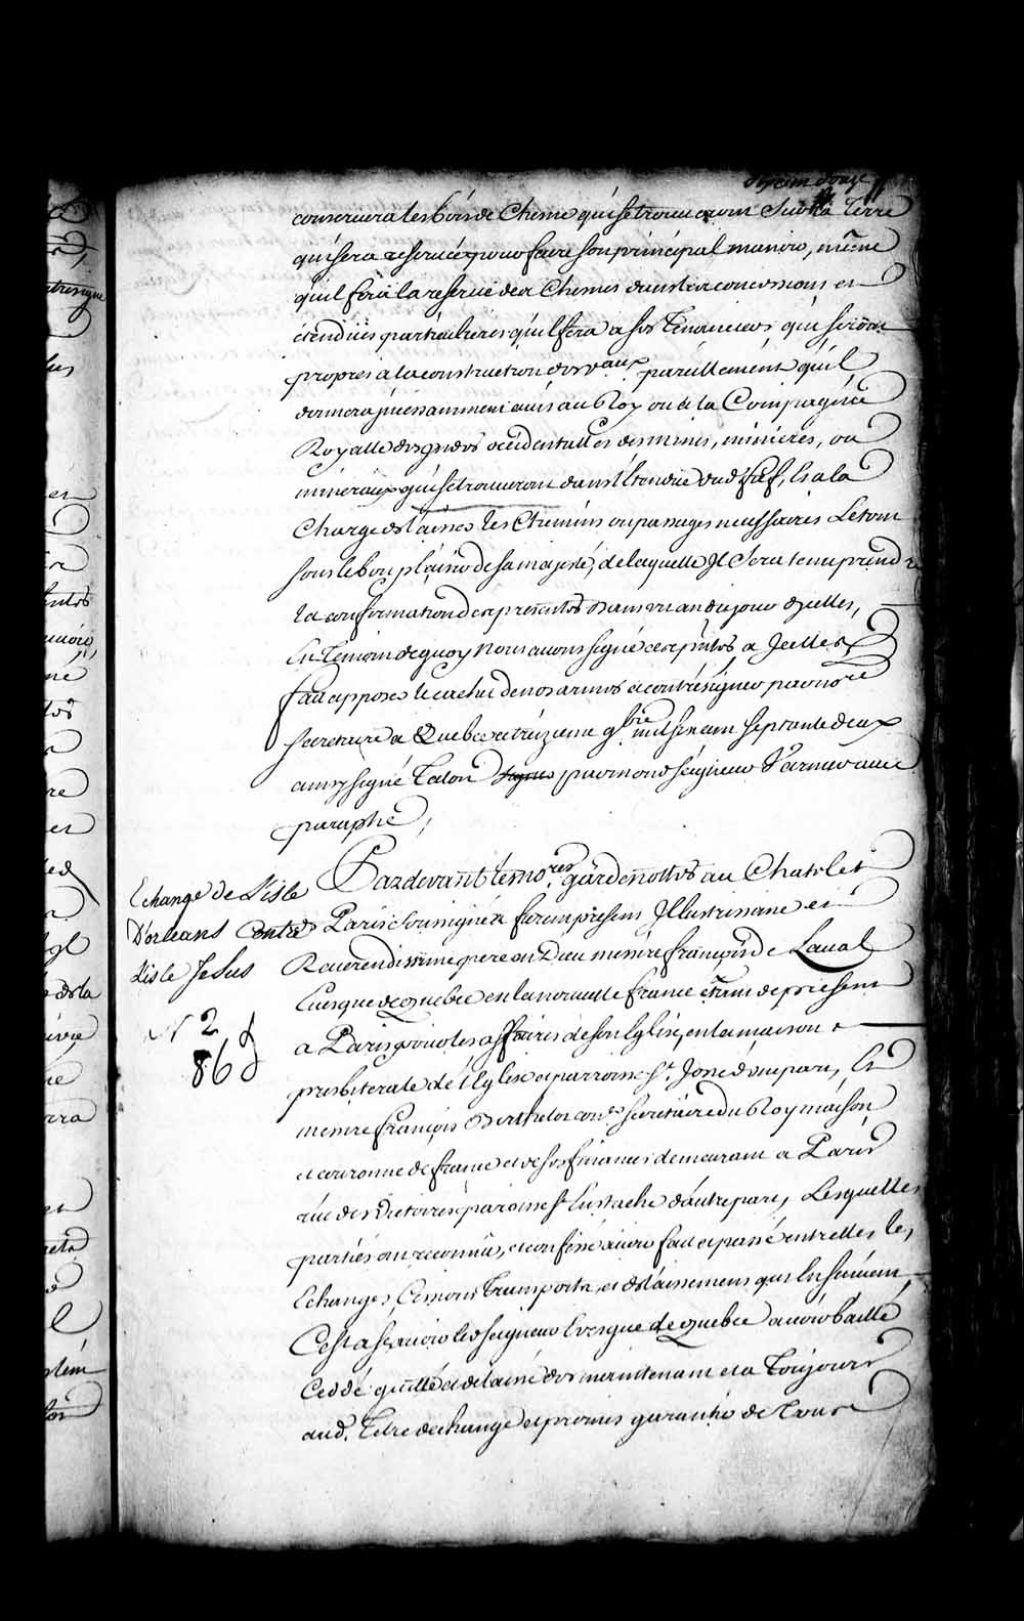 conservera les bois de Chesne qui se trouveront sur la Terre
qui sera reservée pour faire son principal manoir, mesme
qu'il fera la reserve des Chesnes dans les concessions et
etendües particulieres qu'il fera a ses Tenanciers qui seront
propres a la construction des vaux pareillement qu'il
donnera incessamment avis au Roy ou a la Compagnie
Royalle des Indes occidentalles des mines, minieres, ou
mineraux qui se trouveront dans l'Etendüe dud fief, Et a la
Charge de laisser les Chemins ou passages necessaires Le tout
sous le bon plaisir de sa majesté, de laquelle Il sera tenu prendre
la confirmation des presentes dans un an du jour d'jcelles,
En Temoin de quoy Nous avons signé ces pntes a Jcelles
fait apposer le cachet de nos armes et contresigner par nore
secretaire a Quebec ce treizieme 9bre mil six cent septante deux
ainsy signé Talon par mond seigneur Varnier avec
paraphe,
Echange de L'isle
D'orleans Contre
L'isle Jesus
N 2
86
Pardevant les nores gardenottes au Chatelet
Paris soussignéz furent presens Jllustrissime et
Reverendissime pere en Dieu messire françois de Laval
Evesque de quebec en la nouvelle france estant de present
a Paris pour les affaires de son Eglise, en la maison
presbiterale de l'Eglise et parroisse St. Josse d'une part, Et
messire françois Berthelot coner secretaire du Roy maison
et couronne de france et de ses finances demeurant a Paris
rüe des Victoires paroisse St Eustache d'autre part, Lesquelles
parties ont reconnu, et confessé avoir fait et passé entrelles les
Echanges, Cessions Transports, et delaissemens qui Ensuivent,
C'est a sçavoir led seigneur Evesque de quebec avoir baillé
Ceddé quitté et delaissé des maintenant et a Toujours
aud. Titre d'echange et promis garantir de Tous